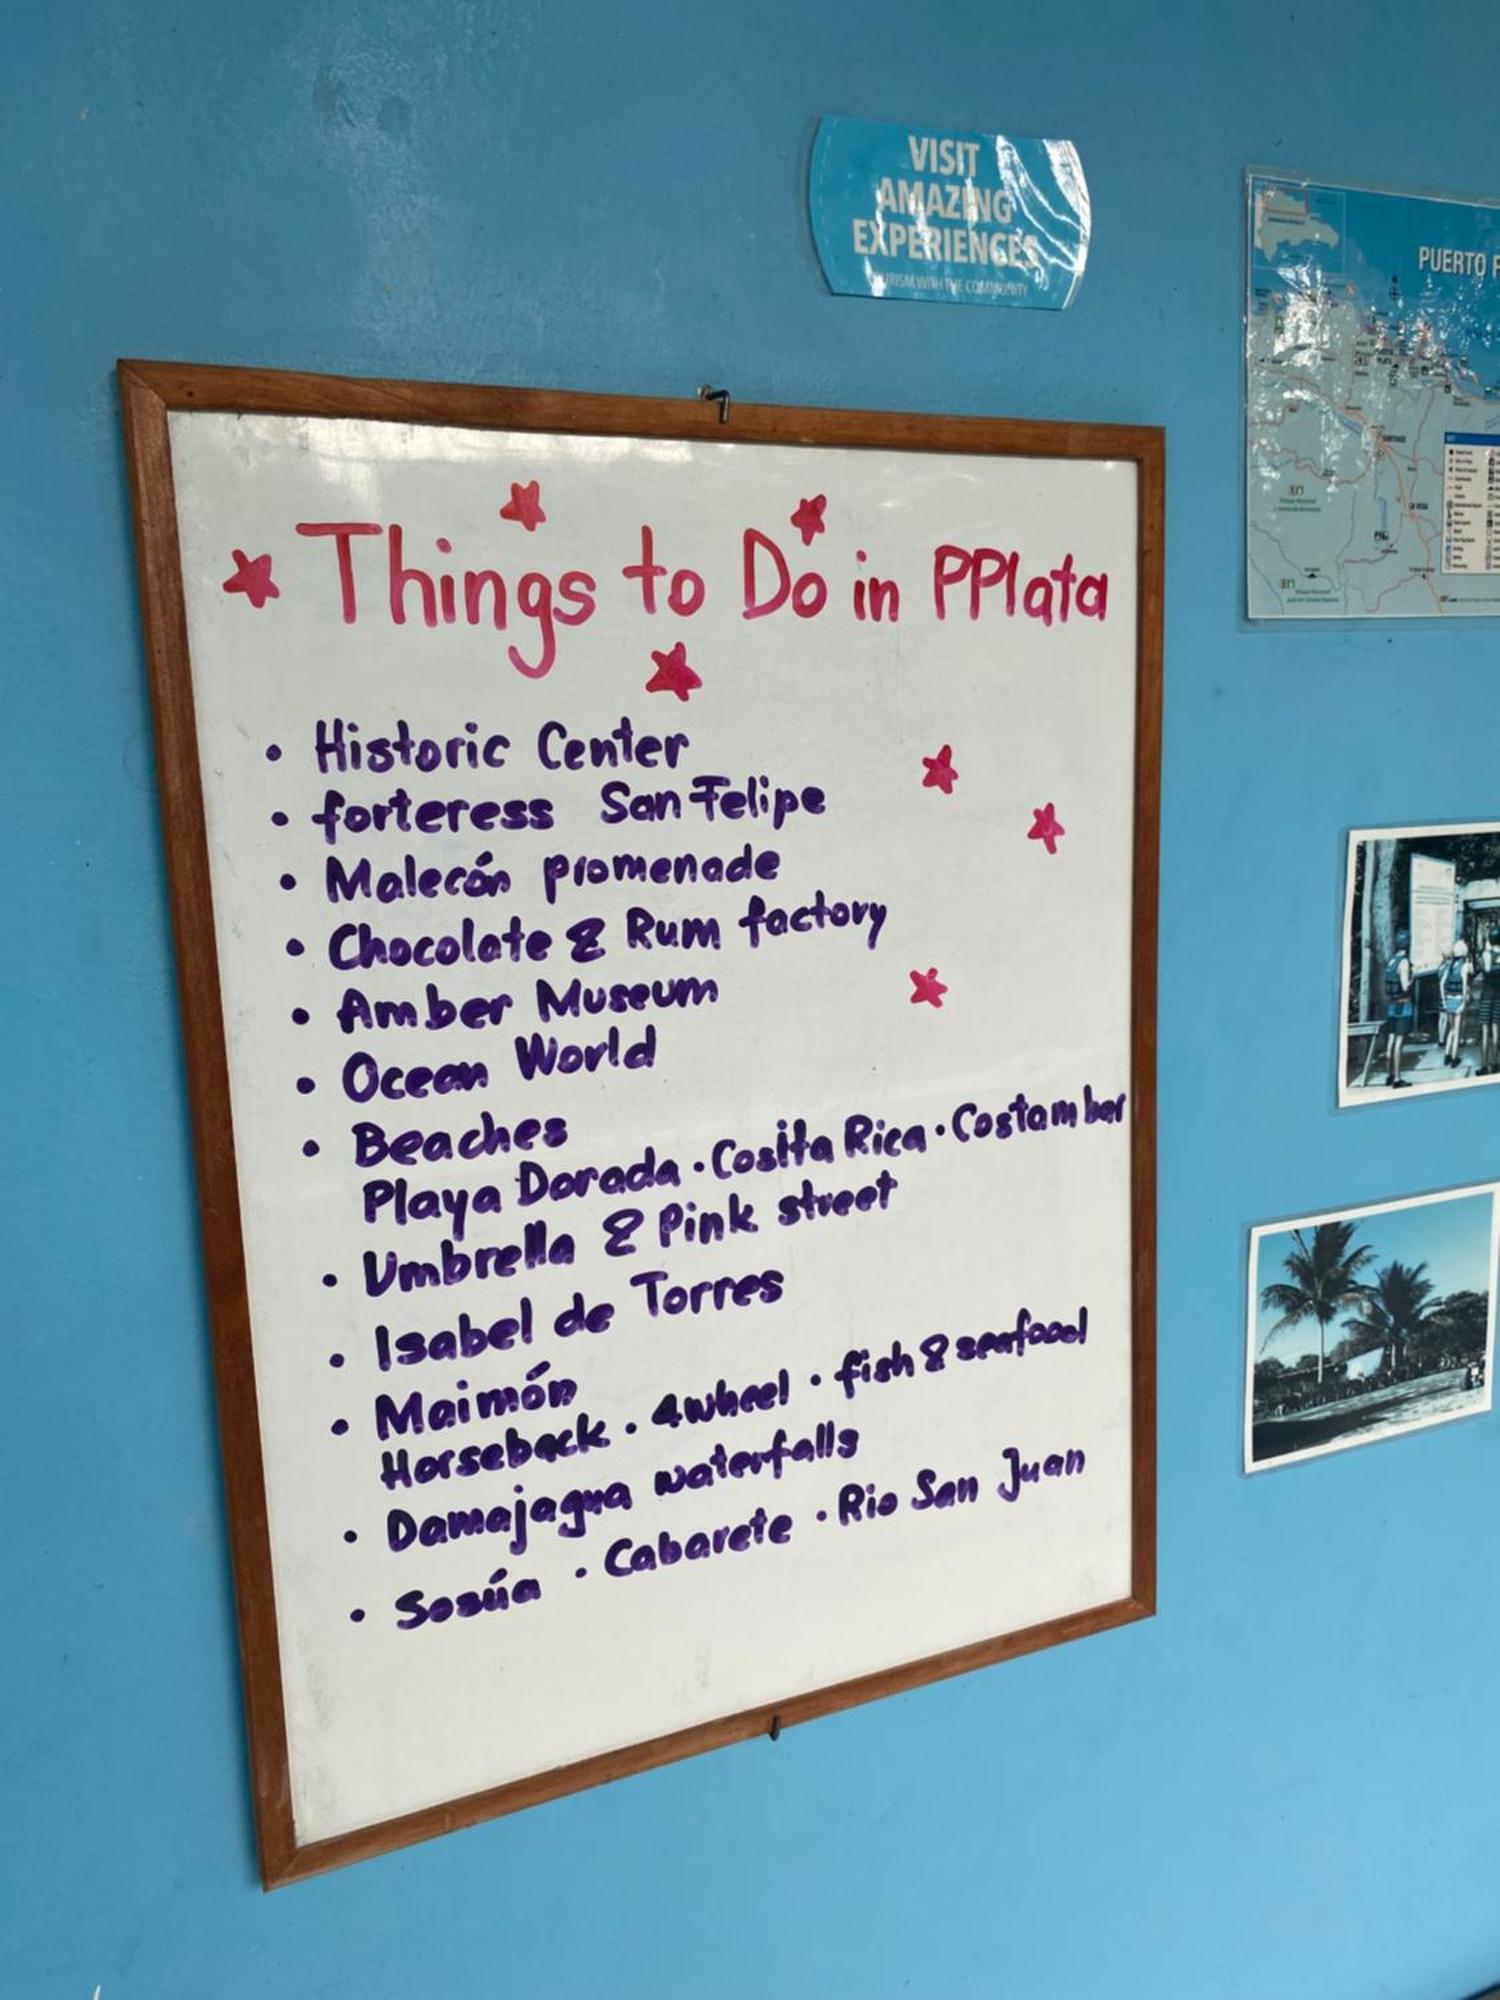 VISIT
AMAZING
EXPERIENCES
WITH THE COMMUNITY
PUERTO
Things to Do in PPlata
• Historic Center
• forteress San Felipe
• Malecón promenade
• Chocolate & Rum factory
• Amber Museum
• Ocean World
• Beaches
Playa Dorada · Cosita Rica · Costambar
• Umbrella & Pink street
• Isabel de Torres
• Maimón
Horseback · 4wheel · fish & seafood
• Damajagua waterfalls
• Sosúa · Cabarete · Rio San Juan